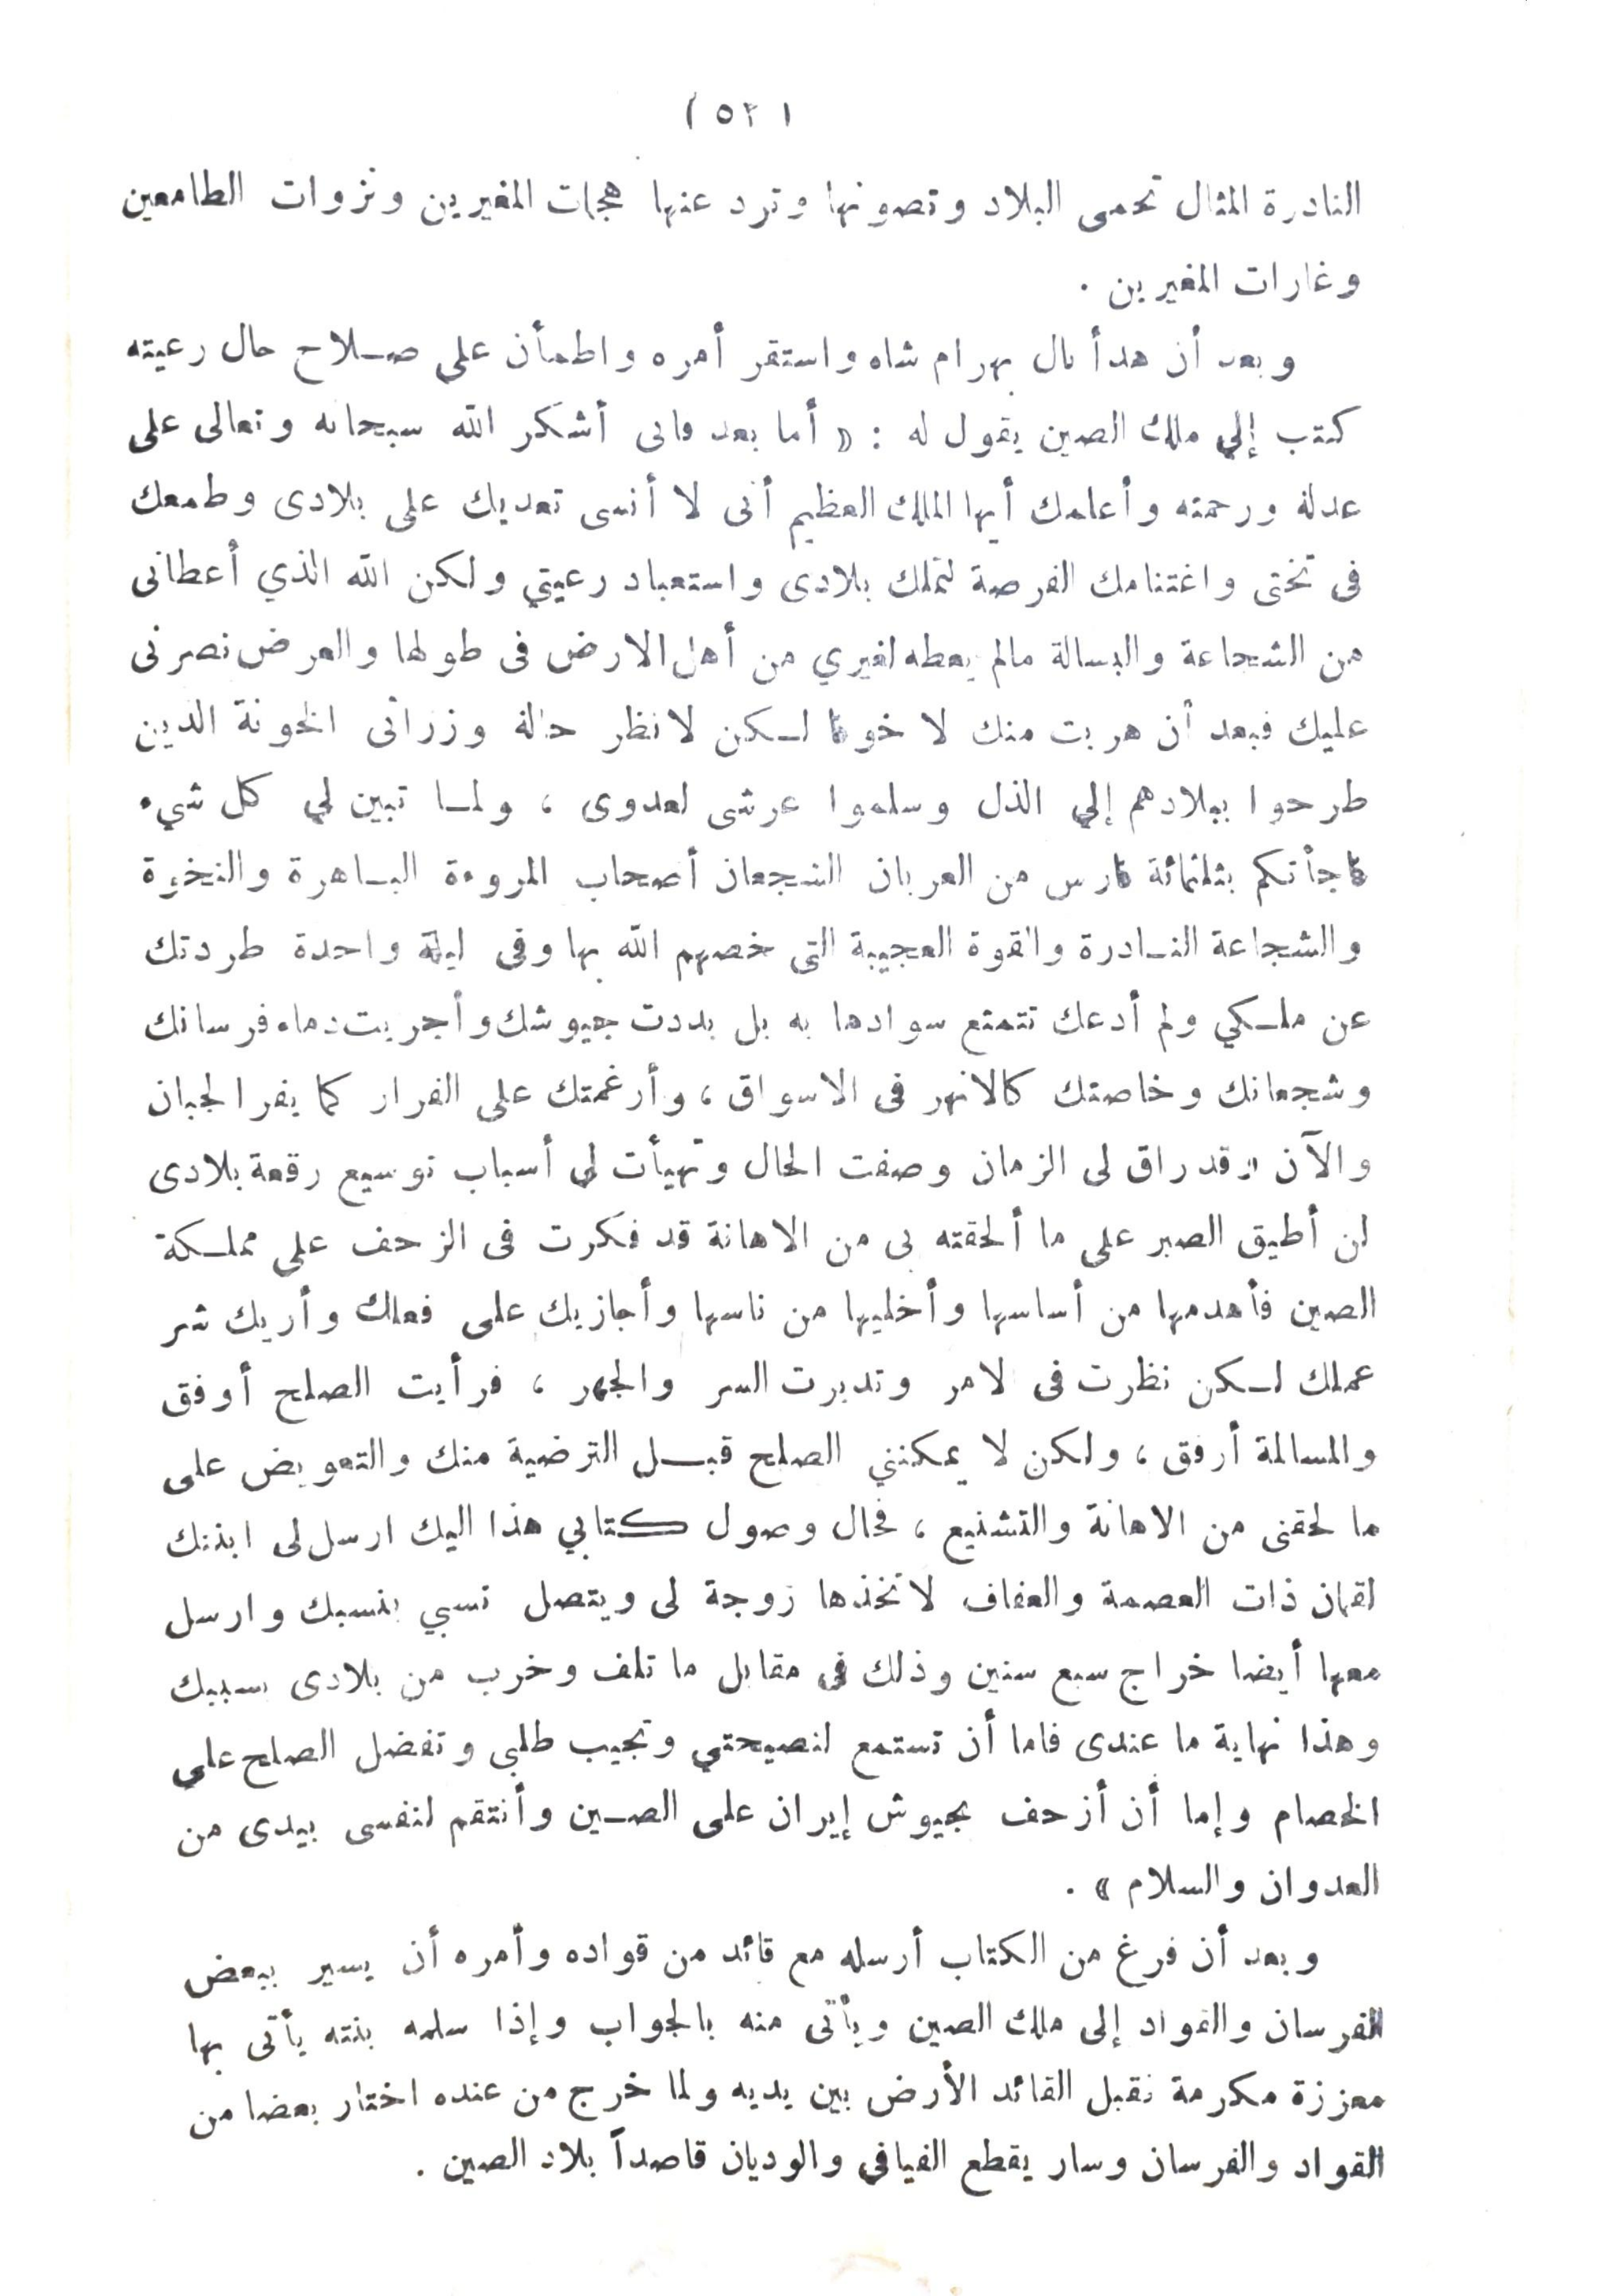 ( ٥٢١ )
النادرة المثال تحمى البلاد وتصونها وترد عنها هجمات المغيرين ونزوات الطامعين
وغارات المغيرين .
وبعد أن هدأ بال بهرام شاه واستقر أمره واطمأن على صـلاح حال رعيته
كتب إلي ملك الصين يقول له : « أما بعد فانى أشكر الله سبحانه وتعالى على
عدله ورحمته وأعلمك أيها الملك العظيم أنى لا أنسى تعديك على بلادى وطمعك
فى تختى واغتنامك الفرصة لتملك بلادى واستعباد رعيتي ولكن الله الذي أعطانى
من الشجاعة والبسالة مالم يعطه لغيري من أهل الارض فى طولها والعرض نصرنى
عليك فبعد أن هربت منك لا خوفا لـكن لانظر حالة وزرائى الخونة الذين
طرحوا ببلادهم إلي الذل وسلموا عرشى لعدوى ، ولمـا تبين لي كل شيء
فاجأتكم بثلثمائة فارس من العربان الشجعان أصحاب المروءة البـاهرة والنخوة
والشجاعة النـادرة والقوة العجيبة التى خصهم الله بها وفى ليلة واحدة طردتك
عن ملـكي ولم أدعك تتمتع سوادها به بل بددت جيوشك وأجريت دماء فرسانك
وشجعانك وخاصتك كالانهر فى الاسواق ، وأرغمتك على الفرار كما يفر الجبان
والآن وقد راق لى الزمان وصفت الحال وتهيأت لى أسباب توسيع رقعة بلادى
لن أطيق الصبر على ما ألحقته بى من الاهانة قد فكرت فى الزحف على مملـكة
الصين فأهدمها من أساسها وأخليها من ناسها وأجازيك على فعلك وأريك شر
عملك لـكن نظرت فى لامر وتدبرت السر والجهر ، فرأيت الصلح أوفق
والمسالمة أرفق ، ولكن لا يمكنني الصلح قبـل الترضية منك والتعويض على
ما لحقنى من الاهانة والتشنيع ، فحال وصول كتابي هذا اليك ارسل لى ابنتك
لقمان ذات العصمة والعفاف لاتخذها زوجة لى ويتصل نسبي بنسبك وارسل
معها أيضا خراج سبع سنين وذلك فى مقابل ما تلف وخرب من بلادى بسببك
وهذا نهاية ما عندى فاما أن تستمع لنصيحتي وتجيب طلبى وتفضل الصلح على
الخصام وإما أن أزحف بجيوش إيران على الصـين وأنتقم لنفسى بيدى من
العدوان والسلام » .
وبعد أن فرغ من الكتاب أرسله مع قائد من قواده وأمره أن يسير ببعض
الفرسان والقواد إلى ملك الصين ويأتى منه بالجواب وإذا سلمه بنته يأتى بها
معززة مكرمة فقبل القائد الأرض بين يديه ولما خرج من عنده اختار بعضا من
القواد والفرسان وسار يقطع الفيافي والوديان قاصداً بلاد الصين .